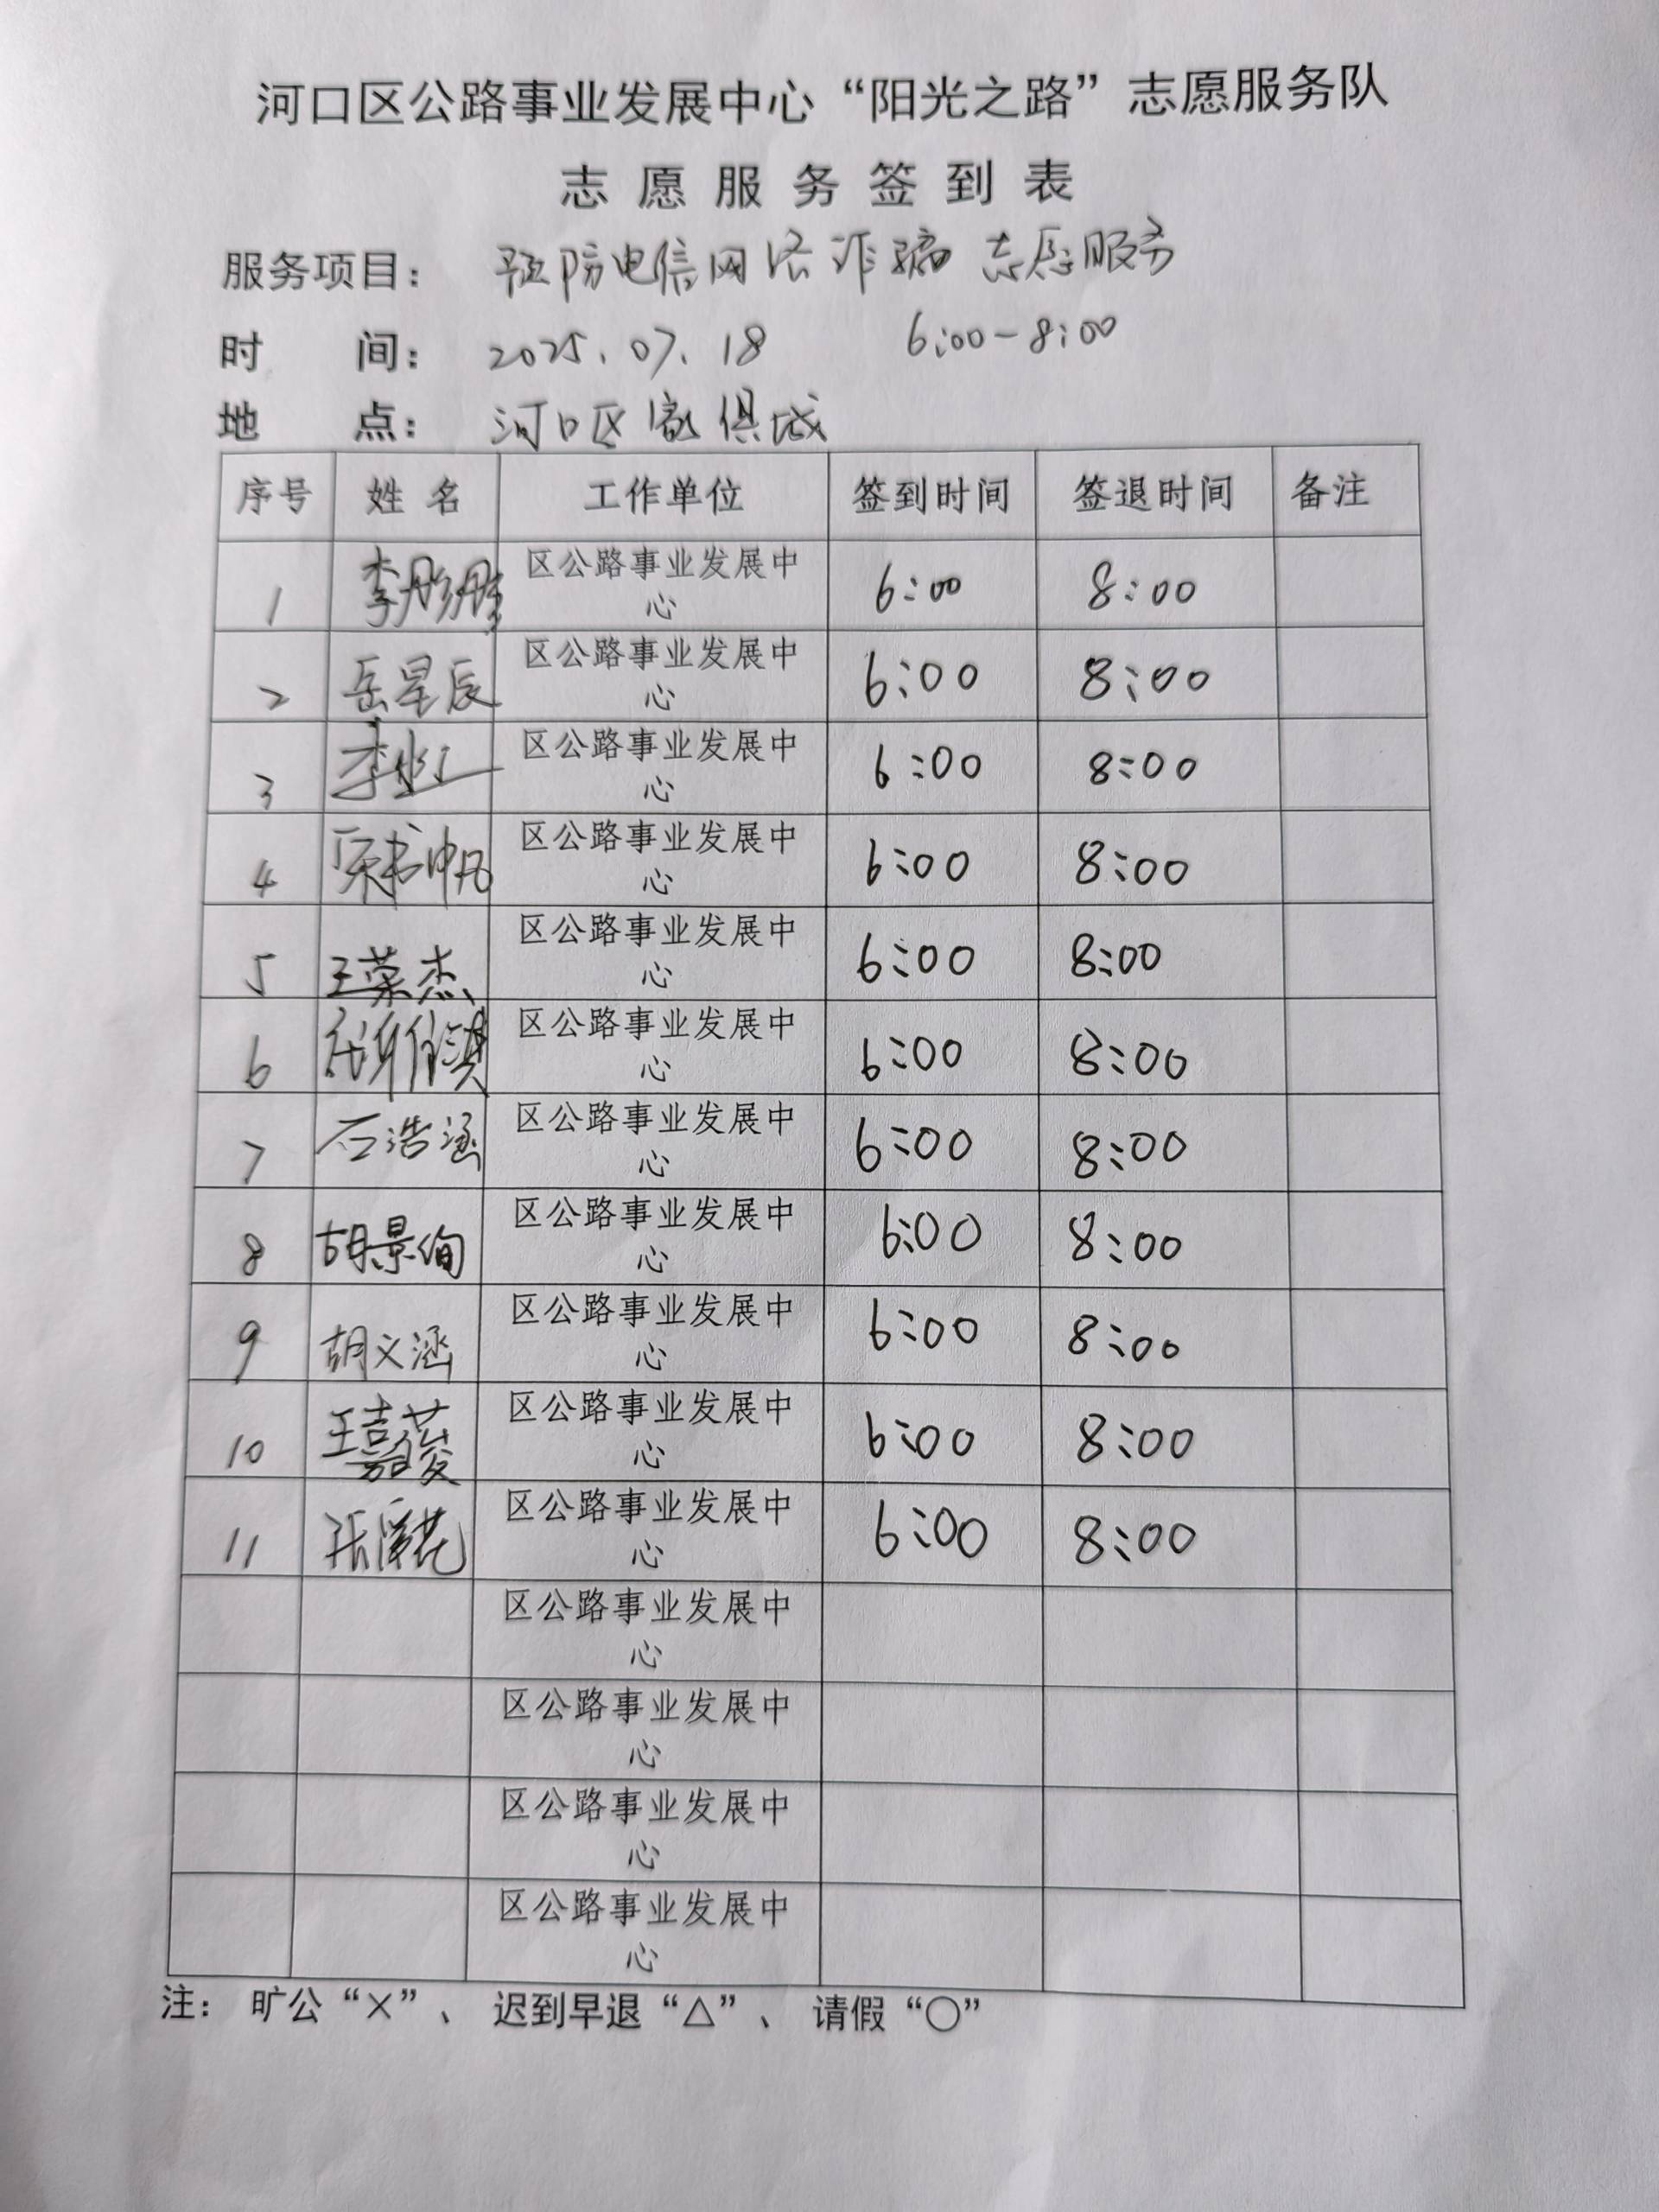 河口区公路事业发展中心“阳光之路”志愿服务队
志愿服务签到表
服务项目： 预防电信网络诈骗志愿服务
时 间： 2025.07.18 6:00-8:00
地 点： 河口区家俱城
序号 姓名 工作单位 签到时间 签退时间 备注
1 李彤彤 区公路事业发展中心 6:00 8:00
2 岳星辰 区公路事业发展中心 6:00 8:00
3 李 区公路事业发展中心 6:00 8:00
4 书帆 区公路事业发展中心 6:00 8:00
5 王荣杰 区公路事业发展中心 6:00 8:00
6 区公路事业发展中心 6:00 8:00
7 石浩涵 区公路事业发展中心 6:00 8:00
8 胡景绚 区公路事业发展中心 6:00 8:00
9 胡义涵 区公路事业发展中心 6:00 8:00
10 王嘉葰 区公路事业发展中心 6:00 8:00
11 张 区公路事业发展中心 6:00 8:00
区公路事业发展中心
区公路事业发展中心
区公路事业发展中心
区公路事业发展中心
注： 旷公“×”、 迟到早退“△”、 请假“○”